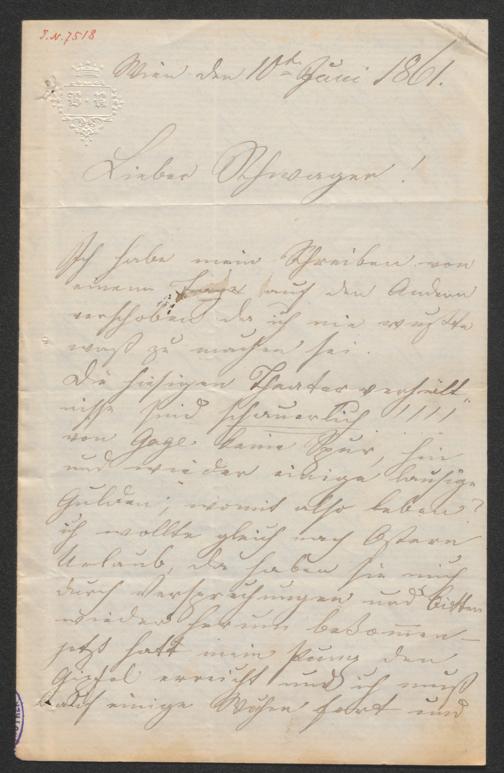 J.N. 7518
Wien den 10t Juni 1861.
Lieber Schwager!
Ich habe mein Schreiben von
einem Tage auf den Andern
verschoben da ich nie wußte
was zu machen sei.
Die hiesigen Theaterverhält-
nisse sind schauerlich !!!!
von Gage keine Spur, hin
und wieder einige lausige
Gulden; womit also leben?
ich wollte gleich nach Ostern
Urlaub, da haben sie mich
durch Versprechungen und Bitten
wieder herum bekommen –
jetzt hatt mein den
Gipfel erreicht und ich muß
auf einige Wochen fort und